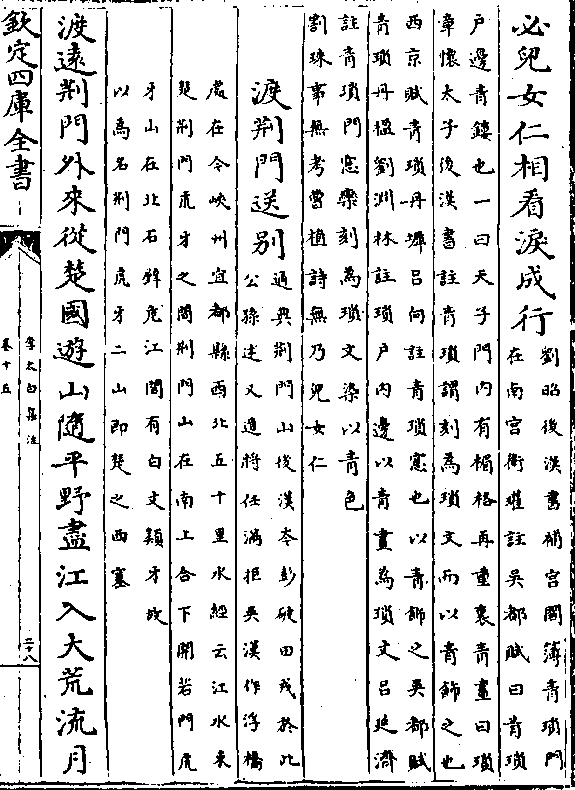 必兒女仁相看淚成行劉昭後漢書補宮閣簿青瑣門
在南宮衛瓘註吳都賦曰青瑣
户邊青鏤也一曰天子門内有楣格再重裏青畫曰瑣
章懷太子後漢書註青瑣謂刻為瑣文而以青飾之也
西京賦青瑣丹墀吕向註青瑣窓也以青飾之吳都賦
青瑣丹楹劉淵林註瑣户内邊以青畫為瑣文吕延濟
註青瑣門窓櫺刻為瑣文染以青色
割珠事無考曹植詩無乃兒女仁
渡荆門送别通典荆門山後漢岑彭破田戎於此
公孫述又遣將任滿拒吳漢作浮橋
處在今峽州宜都縣西北五十里水經云江水東
楚荆門虎牙之間荆門山在南上合下開若門虎
牙山在北石壁危江間有白文類牙故
以為名荆門虎牙二山即楚之西塞
渡遠荆門外來從楚國遊山隨平野盡江入大荒流月
欽定四庫全書
李太白集注
卷十五
二十八